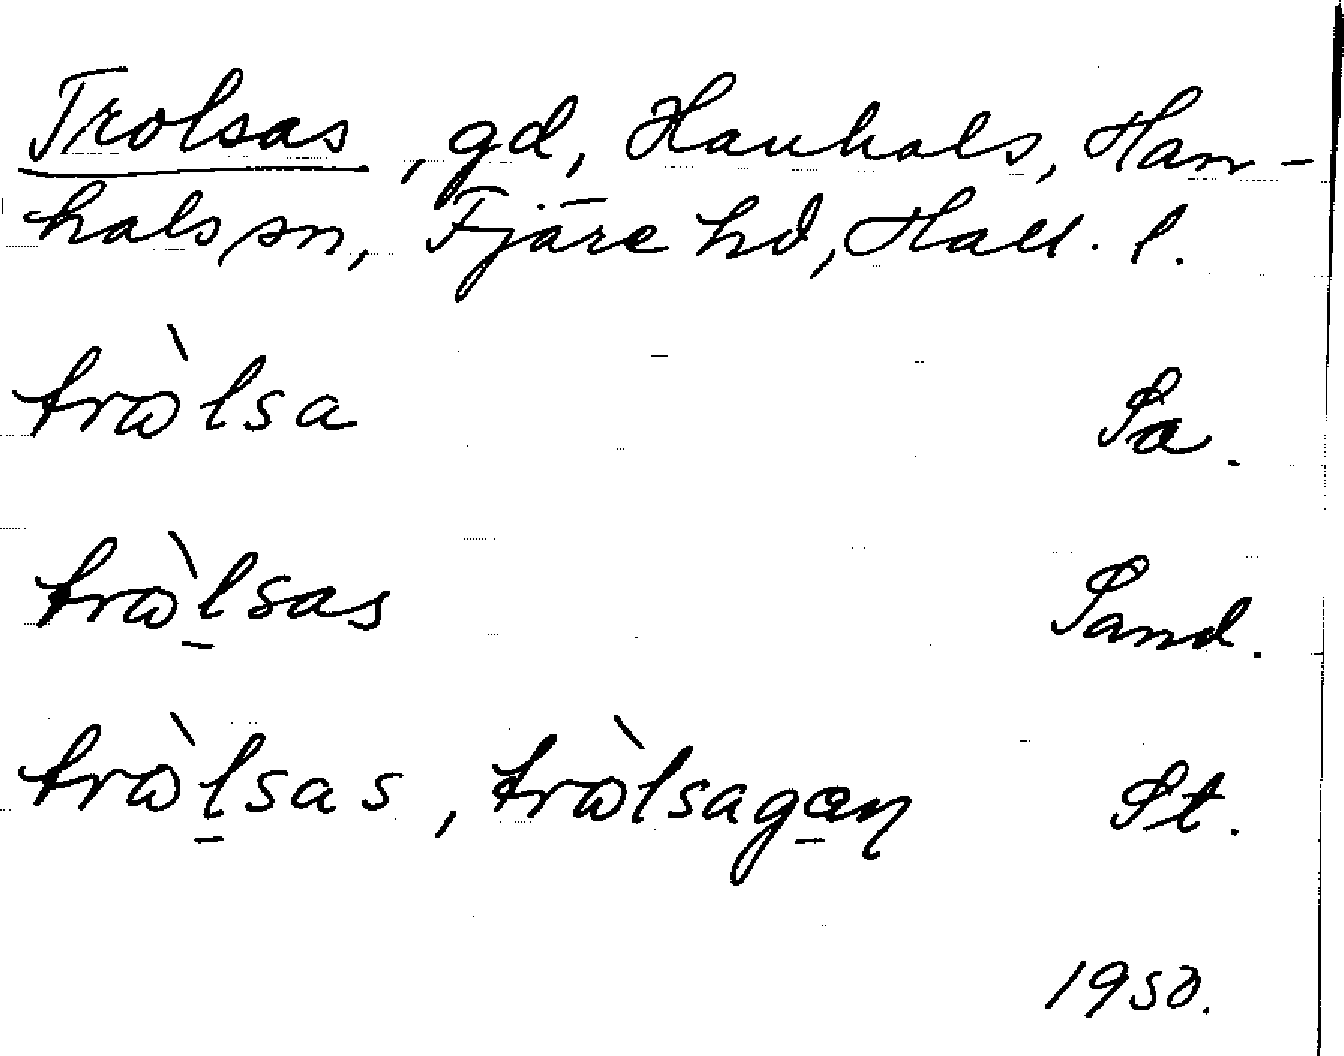 Trolsas, gd, Hanhals, Han-
hals sn, Fjäre hd, Hall. l.
trὼlsa Sa.
trὼl̠sas Sand.
trὼl̠sas, trὼlsaga̠ŋ St.
1950.